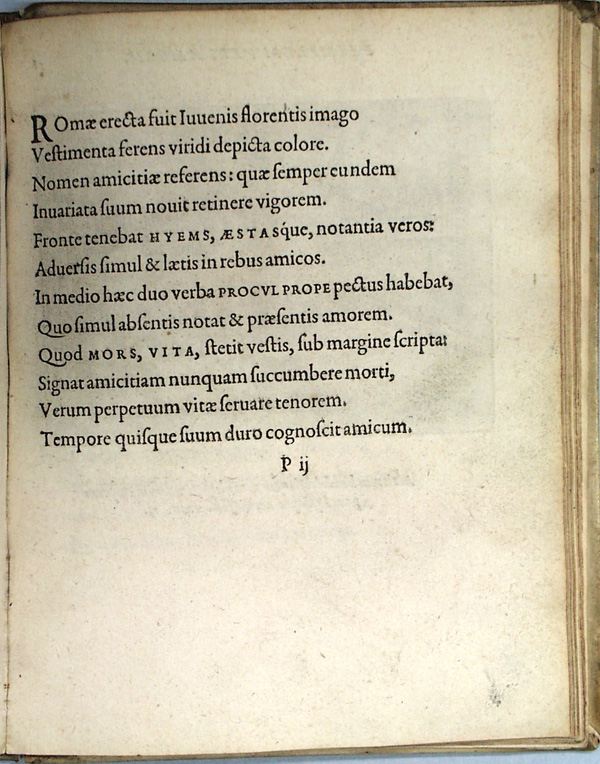 ROmæ erecta fuit Iuuenis florentis imago
Veſtimenta ferens viridi depicta colore.
Nomen amicitiæ referens: quæ ſemper eundem
Inuariata ſuum nouit retinere vigorem.
Fronte tenebat HYEMS, ÆSTASq́ue, notantia veros:
Aduerſis ſimul & lætis in rebus amicos.
In medio hæc duo verba PROCVL PROPE pectus habebat,
Quo ſimul abſentis notat & præſentis amorem.
Quod MORS, VITA, ſtetit veſtis, ſub margine ſcripta:
Signat amicitiam nunquam ſuccumbere morti,
Verum perpetuum vitæ ſeruare tenorem.
Tempore quiſque ſuum duro cognoſcit amicum.
P ij